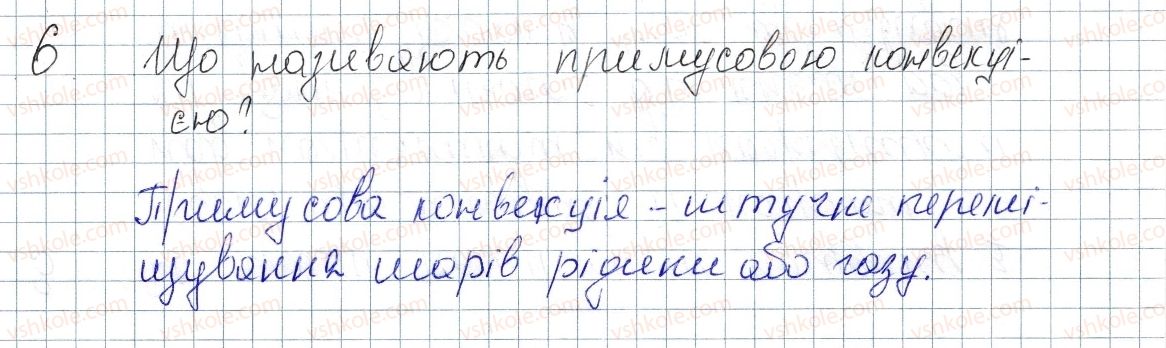 6 Що називають примусовою конвекці-
єю?
Примусова конвекція – штучне перемі-
щування шарів рідини або газу.